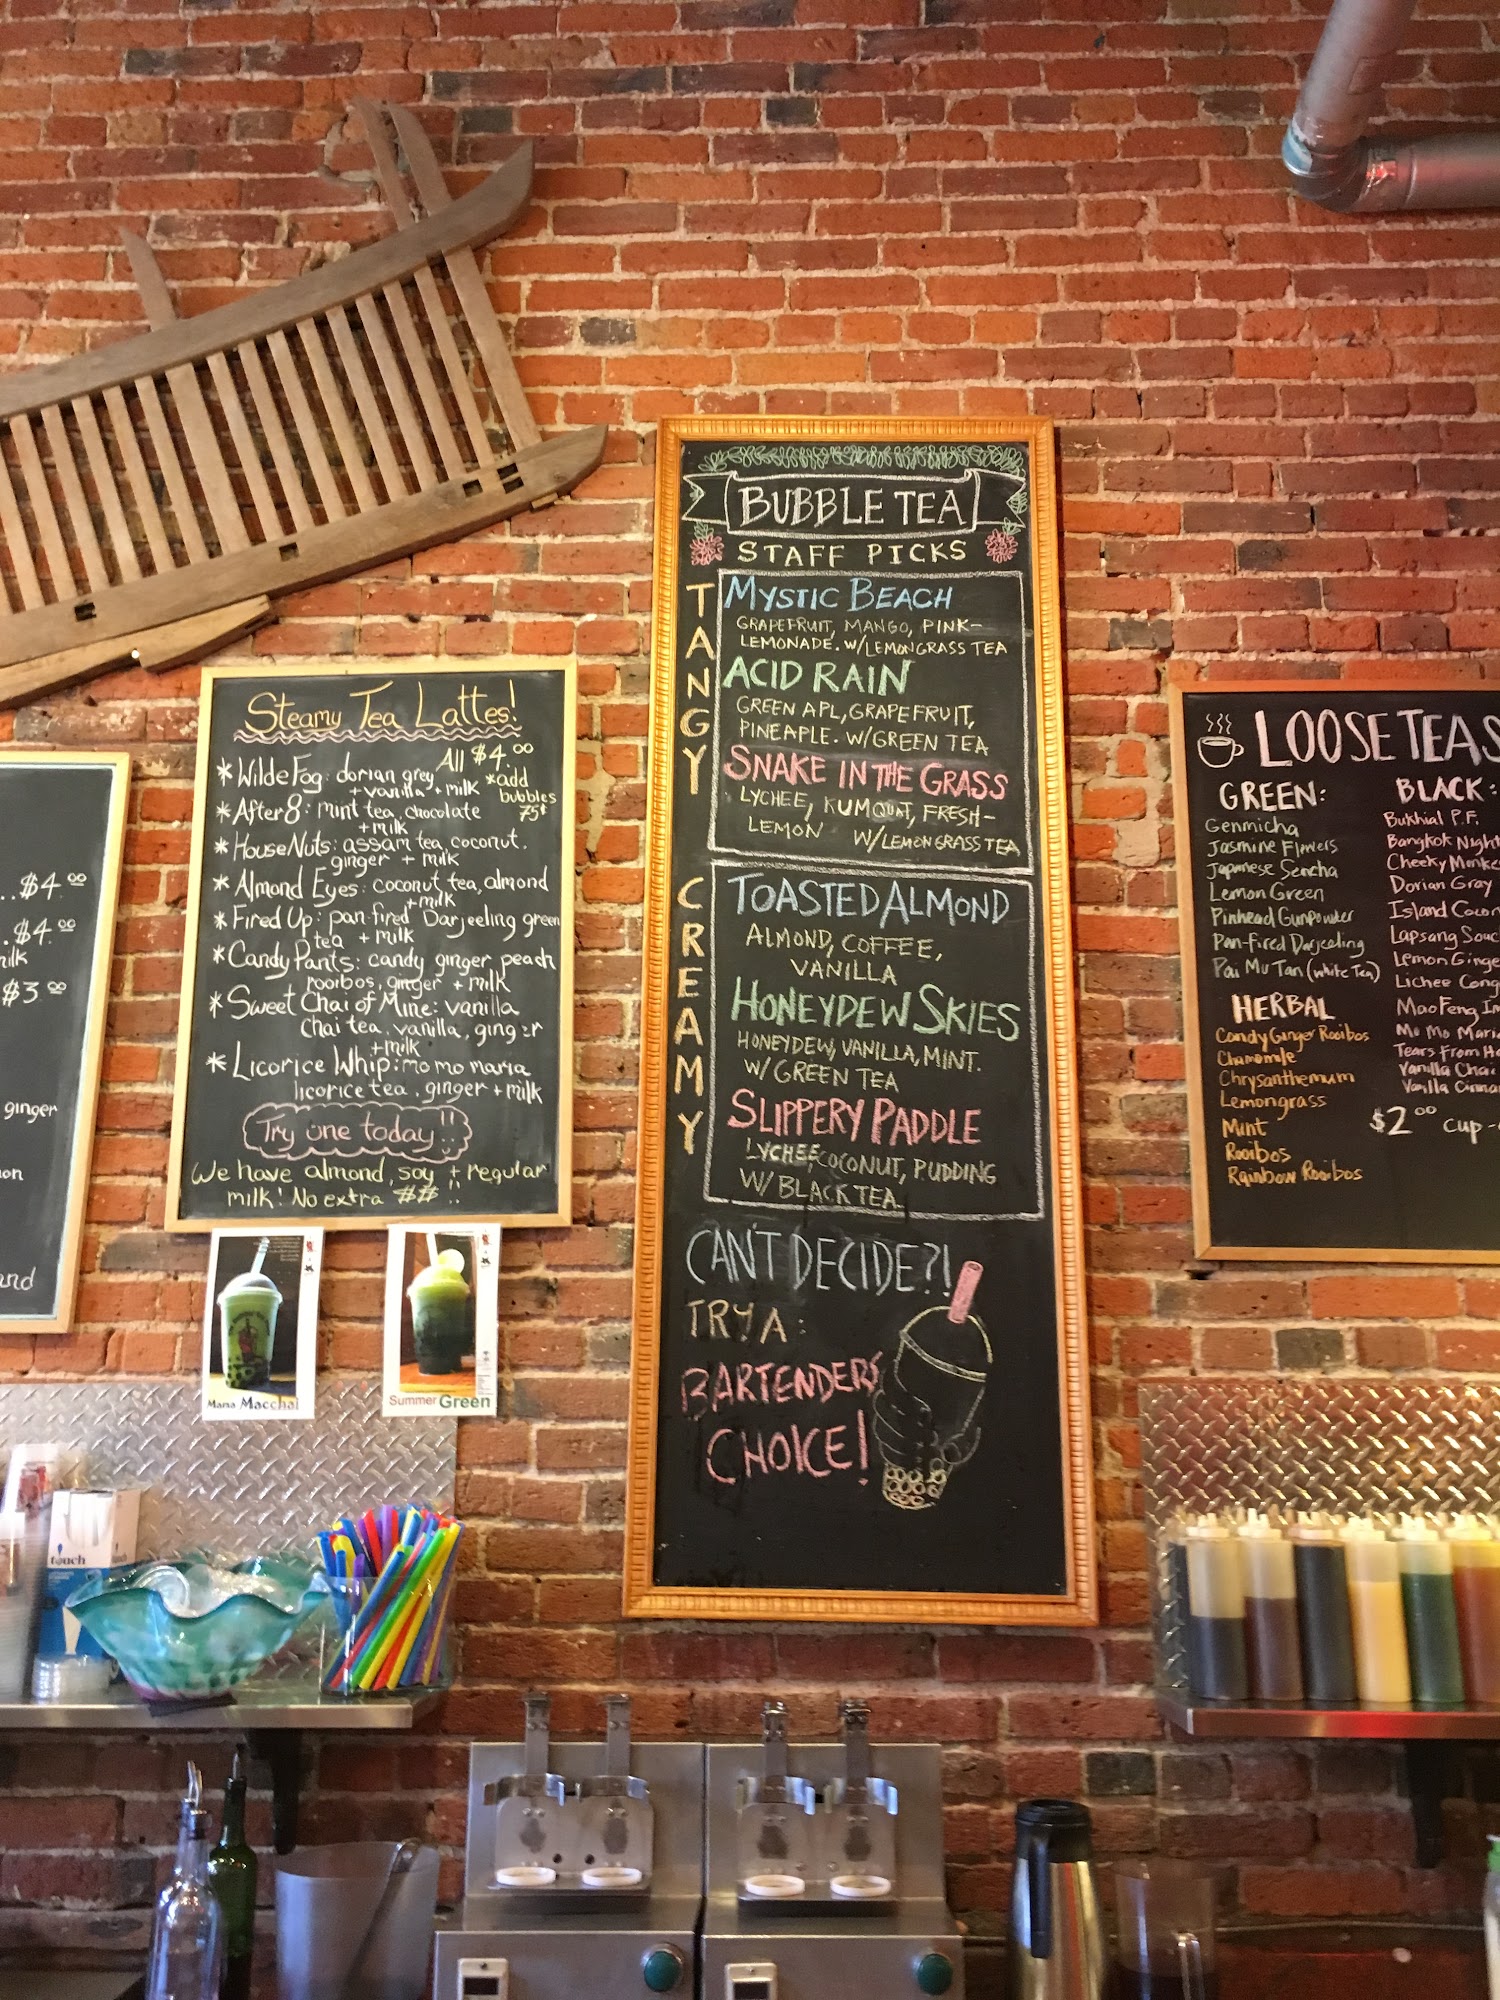 ..$4.00
.$4.00
$3.00
ginger
Steamy Tea Lattes!
All $4.00
*add bubbles 75¢
*Wilde Fog: dorian grey
+ vanilla + milk
*After 8: mint tea, chocolate
+ milk
*House Nuts: assam tea, coconut,
ginger + milk
*Almond Eyes: coconut tea, almond
+ milk
*Fired Up: pan-fired Darjeeling green
tea + milk
*Candy Pants: candy ginger, peach
rooibos, ginger + milk
*Sweet Chai of Mine: vanilla
chai tea, vanilla, ginger
+ milk
*Licorice Whip: mo mo maria
licorice tea, ginger + milk
Try one today!!
We have almond, soy + regular
milk! No extra ##
Mana Macchai
Summer Green
touch
BUBBLE TEA
STAFF PICKS
TANGY
MYSTIC BEACH
GRAPEFRUIT, MANGO, PINK-
LEMONADE. W/LEMONGRASS TEA
ACID RAIN
GREEN APL, GRAPEFRUIT,
PINEAPLE. W/GREEN TEA
SNAKE IN THE GRASS
LYCHEE, KUMQUAT, FRESH-
LEMON W/LEMONGRASS TEA
CREAMY
TOASTED ALMOND
ALMOND, COFFEE,
VANILLA
HONEYDEW SKIES
HONEYDEW, VANILLA, MINT.
W/ GREEN TEA
SLIPPERY PADDLE
LYCHEE, COCONUT, PUDDING
W/ BLACK TEA
CAN'T DECIDE?!
TRY A:
BARTENDERS
CHOICE!
LOOSE TEAS
GREEN:
Genmicha
Jasmine Flowers
Japanese Sencha
Lemon Green
Pinhead Gunpowder
Pan-Fired Darjeeling
Pai Mu Tan (white Tea)
HERBAL
Candy Ginger Rooibos
Chamomile
Chrysanthemum
Lemongrass
Mint
Rooibos
Rainbow Rooibos
BLACK:
Bukhial P.F.
Bangkok Night
Cheeky Monke
Dorian Gray
Island Cocon
Lapsang Souc
Lemon Ginge
Lichee Cong
Mao Feng
Mo Mo Maria
Tears From
Vanilla Chai
Vanilla Cinna
$2.00 cup